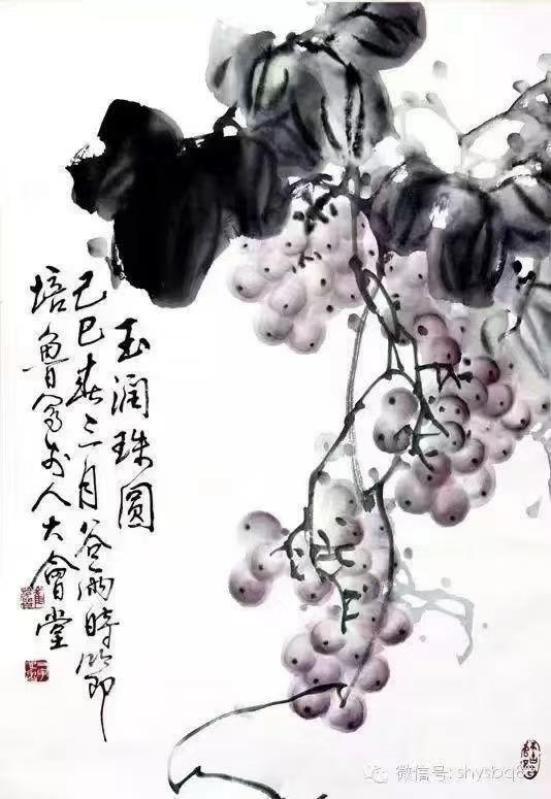 玉润珠圆
己巳春三月谷雨時節
培魯写於人大會堂
微信号: shysbq8